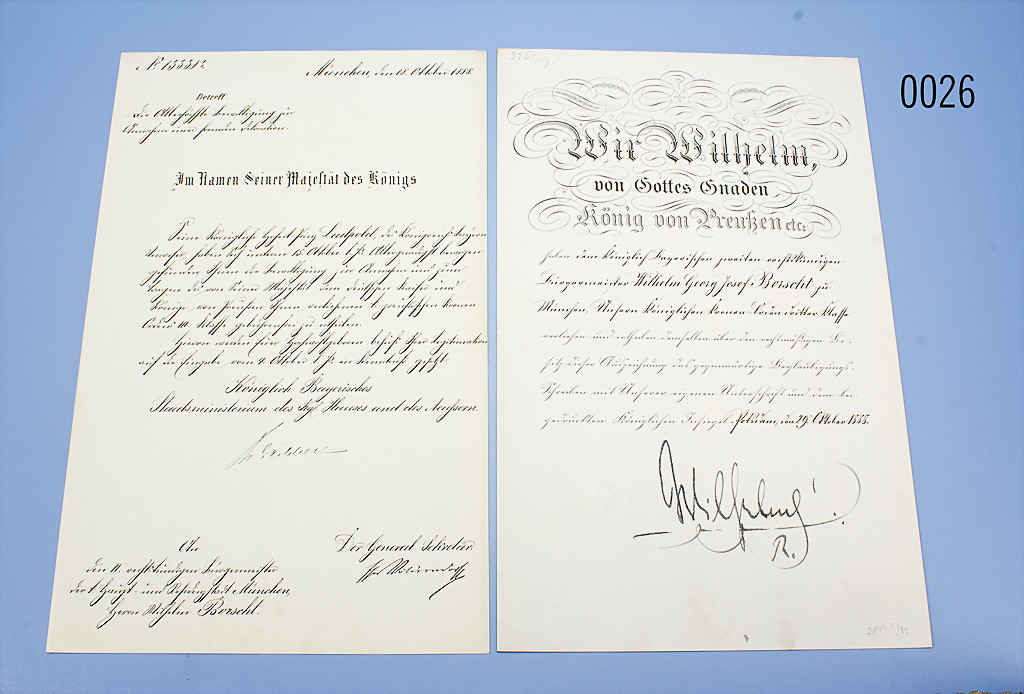 № 13331².
München, den 18. Oktober 1888.
Betreff:
Die Allerhöchste Bewilligung zur
Annahme einer fremden Dekoration.
Im Namen Seiner Majestät des Königs
Seine Königliche Hoheit Prinz Luitpold, des Königreichs Bayern
Verweser, haben Sich unterm 15. Oktober l. Js. Allergnädigst bewogen
gefunden, Ihnen die Bewilligung zur Annahme und zum
Tragen des von Seiner Majestät dem deutschen Kaiser und
Könige von Preußen Ihnen verliehenen k. preußischen Kronen
Ordens III. Klasse gebührenfrei zu ertheilen.
Hievon werden Euer Hochwohlgeboren behufs Ihrer Legitimation
auf die Eingabe vom 4. Oktober l. Js. in Kenntniß gesetzt.
Königlich Bayerisches
Staatsministerium des Kgl. Hauses und des Aeussern.
An
den II. rechtskundigen Bürgermeister
der k. Haupt- und Residenzstadt München,
Herrn Wilhelm Borscht.
Der General Sekretär:
3261/19.
Wir Wilhelm,
von Gottes Gnaden
König von Preußen etc.
haben dem Königlich Bayerischen zweiten rechtskundigen
Bürgermeister Wilhelm Georg Josef Borscht zu
München, Unsern Königlichen Kronen-Orden dritter Klasse
verliehen und ertheilen demselben über den rechtmäßigen Be-
sitz dieser Auszeichnung das gegenwärtige Beglaubigungs-
Schreiben mit Unserer eigenen Unterschrift und dem bei-
gedruckten Königlichen Insiegel. Potsdam, den 29. Oktober 1888.
Wilhelm
R.
0026